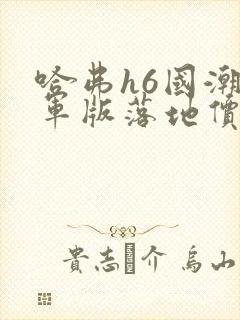 哈弗h6國潮
軍版落地價
貴志 介 烏山